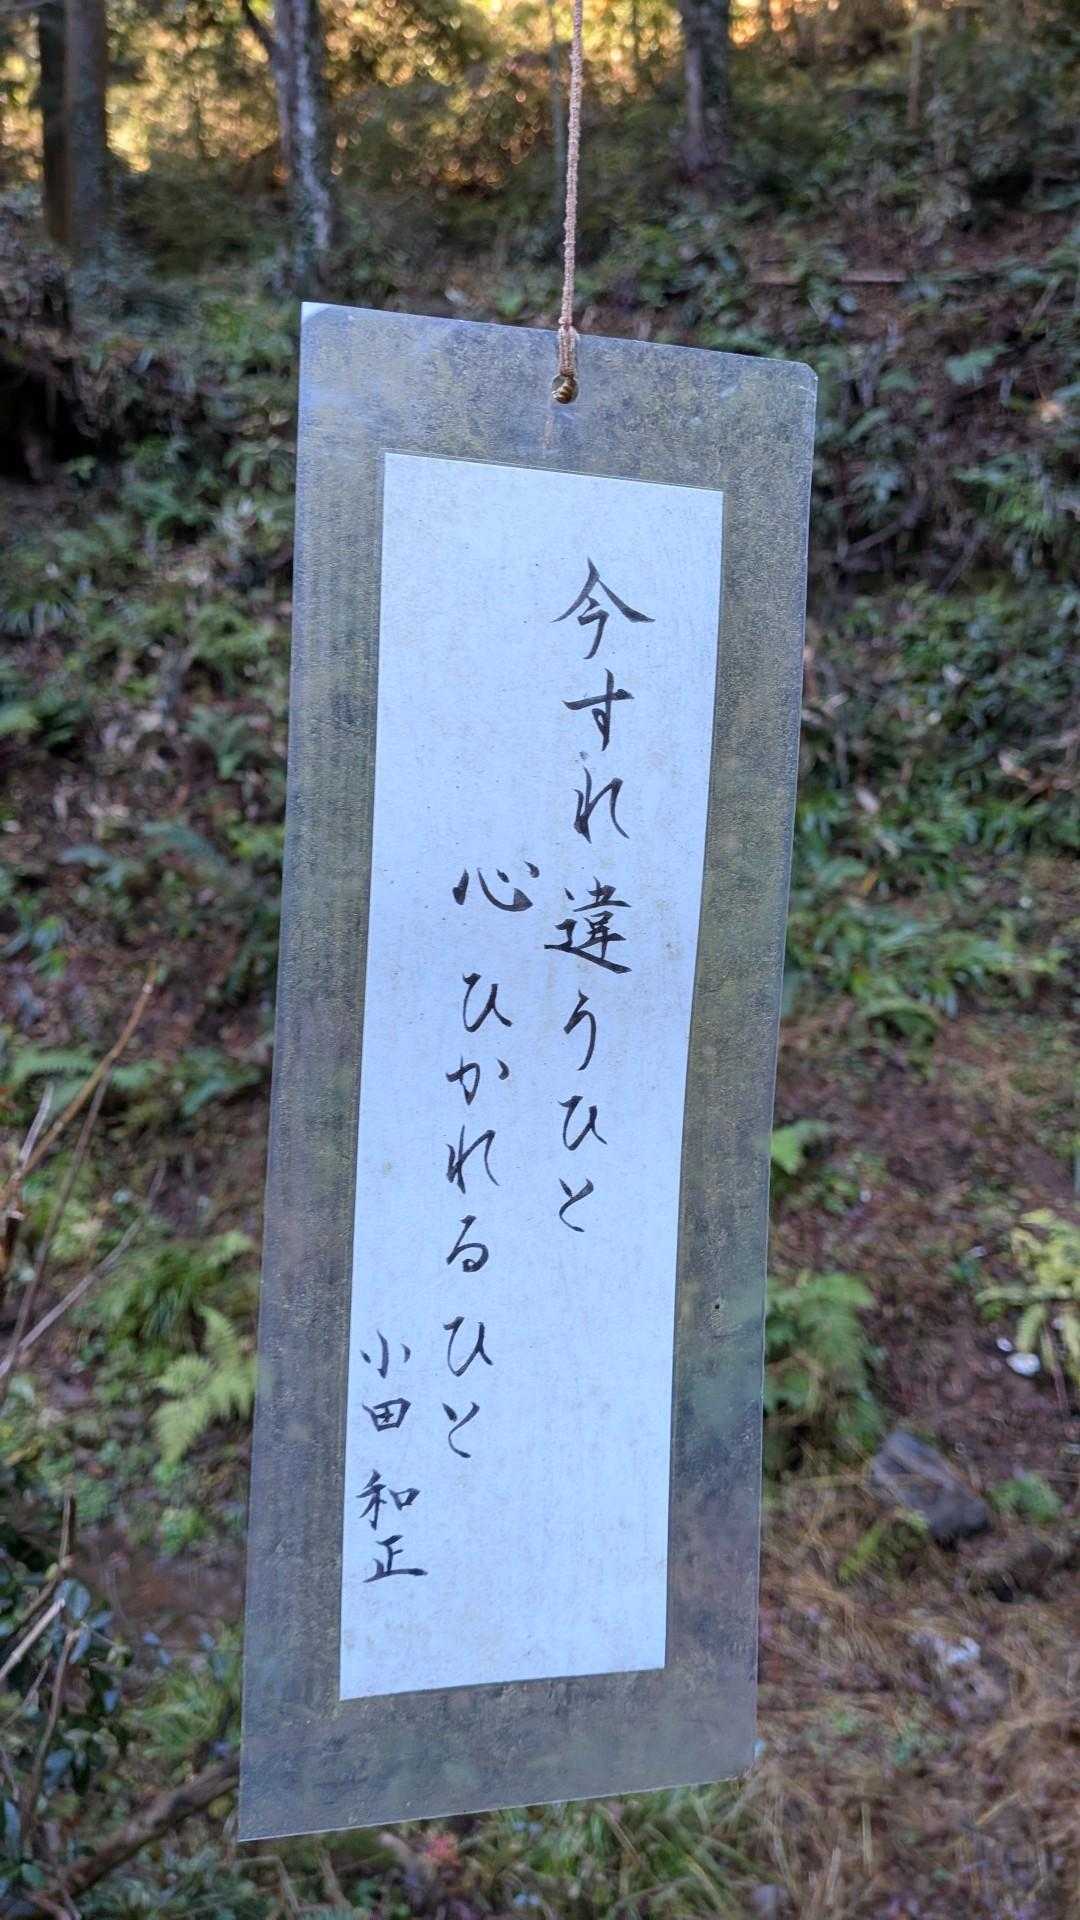 今すれ違うひと
心ひかれるひと
小田和正